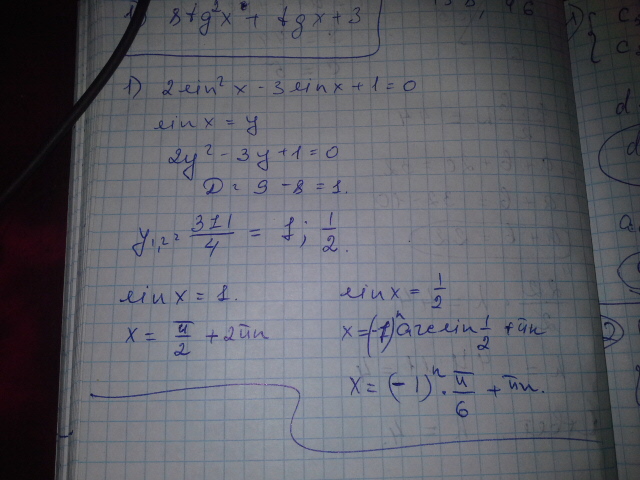 8tg²x + tgx + 3
1) 2sin²x - 3sinx + 1 = 0
sinx = y
2y² - 3y + 1 = 0
D = 9 - 8 = 1.
y₁,₂ = 3±1/4 = 1; 1/2.
sin x = 1.
x = π/2 + 2πn
sin x = 1/2
x = (-1)ⁿ arcsin 1/2 + πn
x = (-1)ⁿ · π/6 + πn.